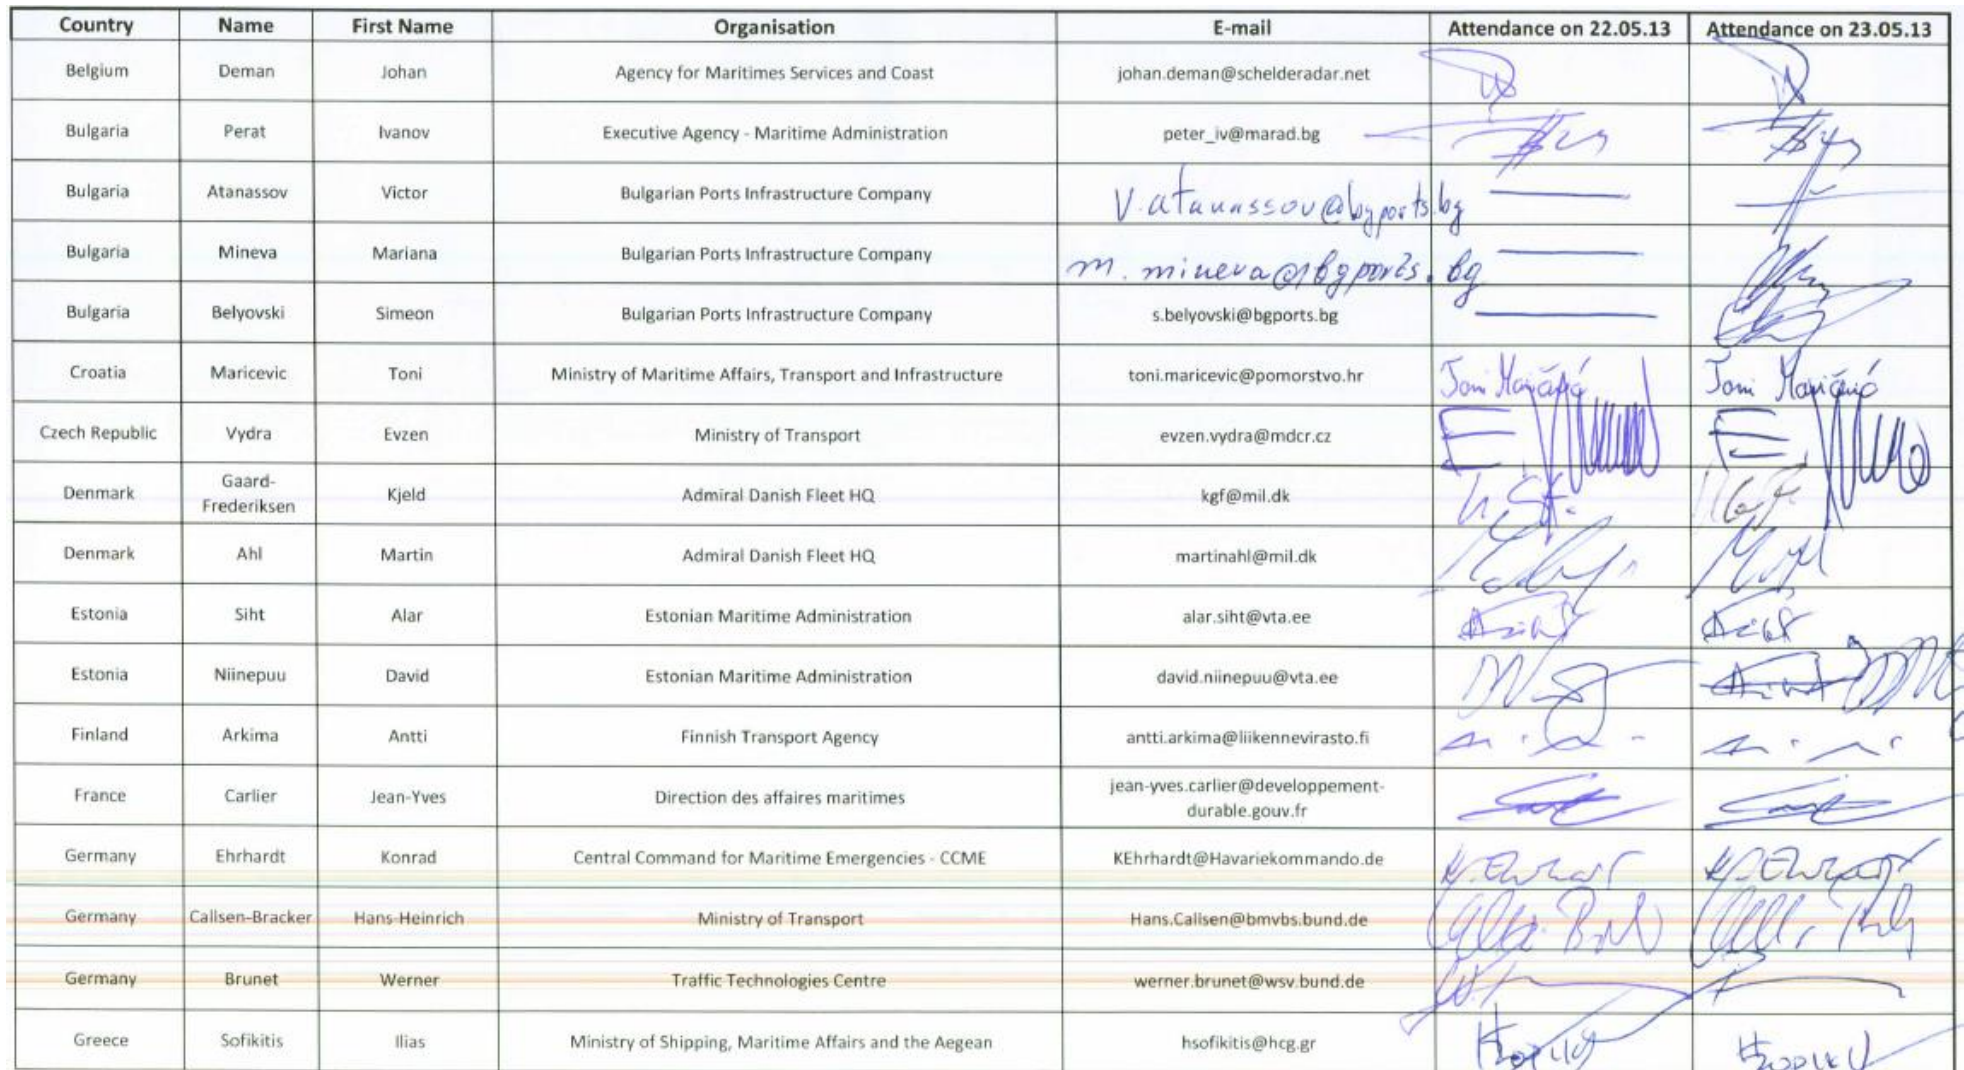 Country Name First Name Organisation E-mail Attendance on 22.05.13 Attendance on 23.05.13
Belgium Deman Johan Agency for Maritimes Services and Coast johan.deman@schelderadar.net
Bulgaria Perat Ivanov Executive Agency - Maritime Administration peter_iv@marad.bg
Bulgaria Atanassov Victor Bulgarian Ports Infrastructure Company v.atanassov@bgports.bg
Bulgaria Mineva Mariana Bulgarian Ports Infrastructure Company m.mineva@bgports.bg
Bulgaria Belyovski Simeon Bulgarian Ports Infrastructure Company s.belyovski@bgports.bg
Croatia Maricevic Toni Ministry of Maritime Affairs, Transport and Infrastructure toni.maricevic@pomorstvo.hr Toni Toni
Czech Republic Vydra Evzen Ministry of Transport evzen.vydra@mdcr.cz
Denmark Gaard-
Frederiksen Kjeld Admiral Danish Fleet HQ kgf@mil.dk
Denmark Ahl Martin Admiral Danish Fleet HQ martinahl@mil.dk
Estonia Siht Alar Estonian Maritime Administration alar.siht@vta.ee
Estonia Niinepuu David Estonian Maritime Administration david.niinepuu@vta.ee
Finland Arkima Antti Finnish Transport Agency antti.arkima@liikennevirasto.fi
France Carlier Jean-Yves Direction des affaires maritimes jean-yves.carlier@developpement-
durable.gouv.fr
Germany Ehrhardt Konrad Central Command for Maritime Emergencies - CCME KEhrhardt@Havariekommando.de
Germany Callsen-Bracker Hans-Heinrich Ministry of Transport Hans.Callsen@bmvbs.bund.de
Germany Brunet Werner Traffic Technologies Centre werner.brunet@wsv.bund.de
Greece Sofikitis Ilias Ministry of Shipping, Maritime Affairs and the Aegean hsofikitis@hcg.gr